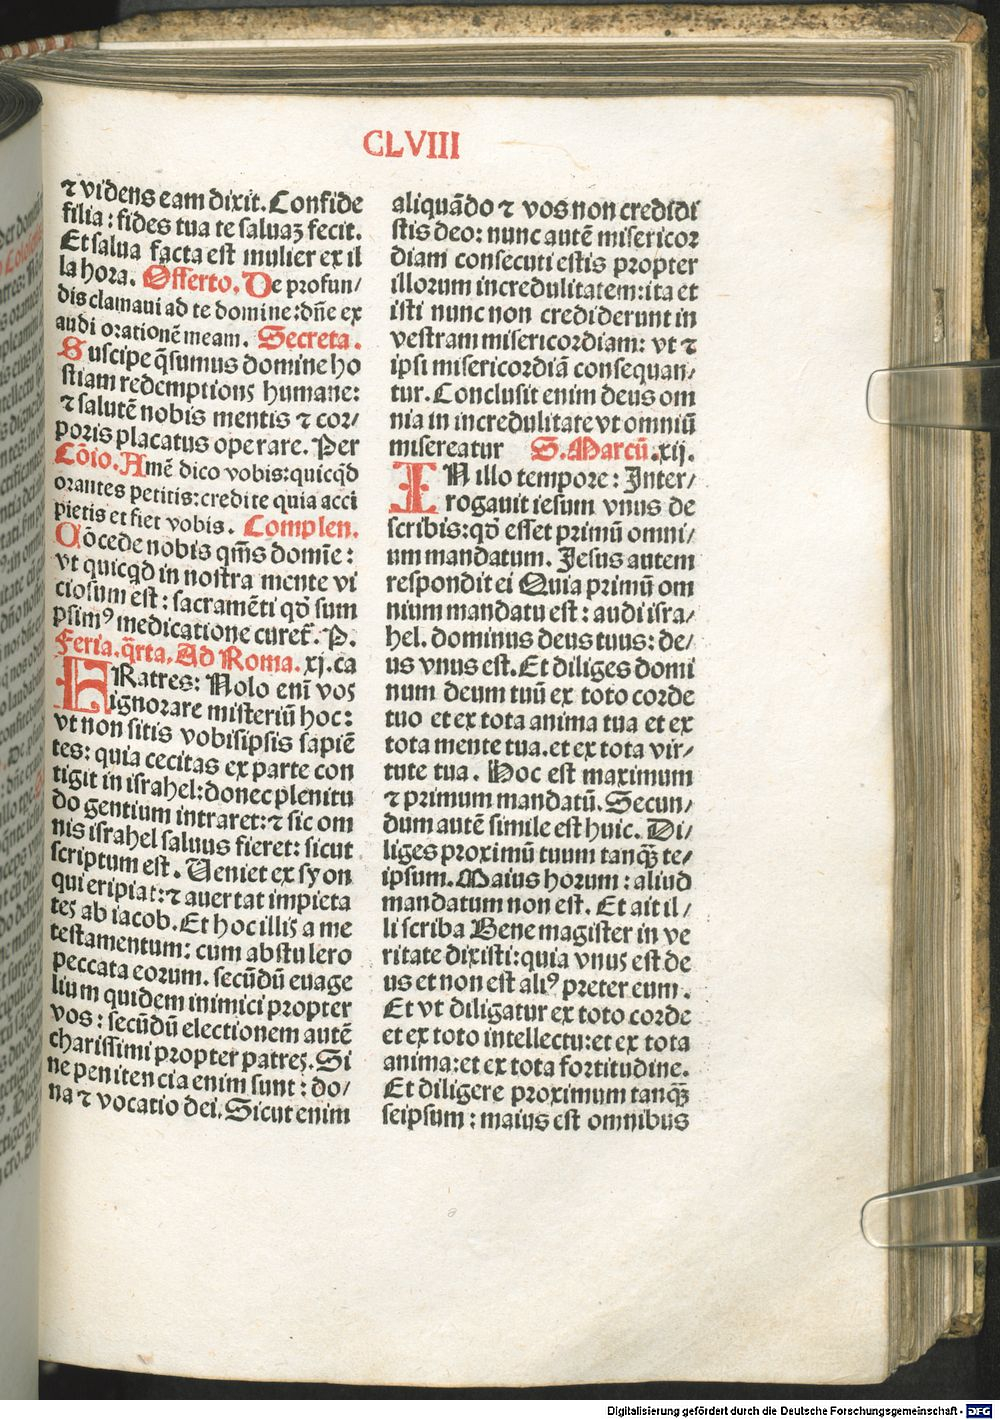 CLVIII
⁊ videns eam dixit. Confide
filia : fides tua te saluaꝫ fecit.
Et salua facta est mulier ex il
la hora. Offerto. De profun/
dis clamaui ad te domine: dñe ex
audi orationē meam. Secreta.
Suscipe q̄sumus domine ho
stiam redemptionꝭ humane:
⁊ salutē nobis mentis ⁊ cor/
poris placatus operare. Per
Cōio. Amē dico vobis: quicq̄d
orantes petitis: credite quia acci
pietis et fiet vobis. Complen.
Cōcede nobis qm̄s domīe :
vt quicqd in nostra mente vi
ciosum est : sacramēti qō sum
psimꝰ medicatione curet̄. P.
Feria. q̄rta. Ad Roma. xj. ca
FRatres: Nolo enī vos
ignorare misteriū hoc :
vt non sitis vobisipsis sapiē
tes: quia cecitas ex parte con
tigit in israhel: donec plenitu
do gentium intraret: ⁊ sic om
nis israhel saluus fieret: sicut
scriptum est. Ueniet ex syon
qui eripiat: ⁊ auertat impieta
tes ab iacob. Et hoc illis a me
testamentum: cum abstulero
peccata eorum. secūdū euāge
lium quidem inimici propter
vos : secūdū electionem autē
charissimi propter patres. Si
ne penitencia enim sunt : do/
na ⁊ vocatio dei. Sicut enim
aliquādo ⁊ vos non credidi
stis deo: nunc autē misericor
diam consecuti estis propter
illorum incredulitatem: ita et
isti nunc non crediderunt in
vestram misericordiam: vt ⁊
ipsi misericordiā consequan/
tur. Conclusit enim deus om
nia in incredulitate vt omniū
misereatur S. Marcū. xij.
IN illo tempore : Inter/
rogauit iesum vnus de
scribis: qō esset primū omni/
um mandatum. Jesus autem
respondit ei Quia primū om
nium mandatu est : audi isra/
hel. dominus deus tuus: de/
us vnus est. Et diliges domi
num deum tuū ex toto corde
tuo et ex tota anima tua et ex
tota mente tua. et ex tota vir/
tute tua. Hoc est maximum
⁊ primum mandatū. Secun/
dum autē simile est huic. Di/
liges proximū tuum tanq̄ꝫ te/
ipsum. Maius horum : aliud
mandatum non est. Et ait il/
li scriba Bene magister in ve
ritate dixisti: quia vnus est de
us et non est aliꝰ preter eum.
Et vt diligatur ex toto corde
et ex toto intellectu: et ex tota
anima: et ex tota fortitudine.
Et diligere proximum tanq̄ꝫ
seipsum : maius est omnibus
Digitalisierung gefördert durch die Deutsche Forschungsgemeinschaft - DFG